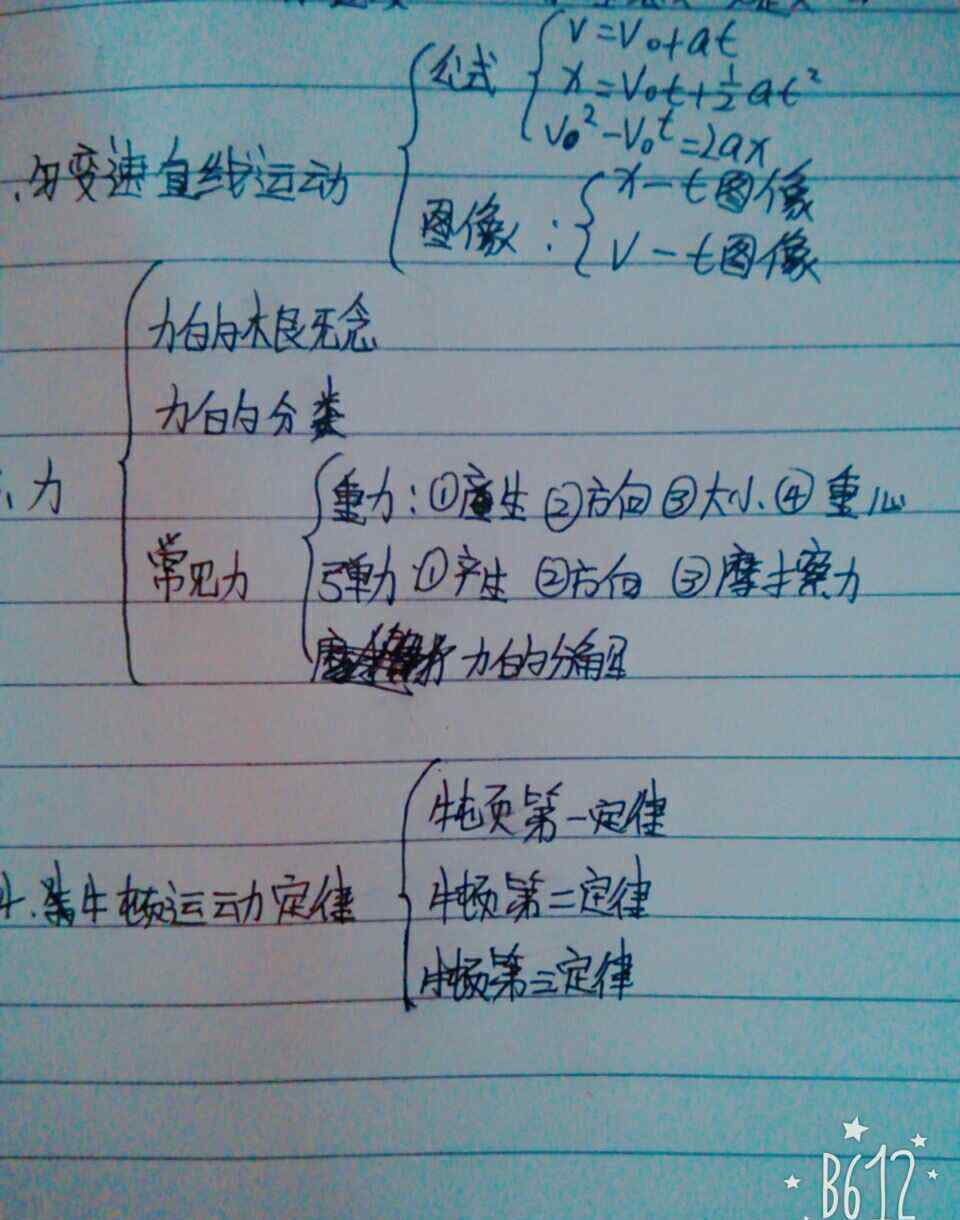 公式 v=v₀+at
x=v₀t+½at²
v₀²-v₀ᵗ=2ax
.匀变速直线运动
图像: x-t图像
v-t图像
力的概念
力的分类
、力
重力:①产生 ②方向 ③大小. ④重心
常见力 弹力:①产生 ②方向 ③摩擦力
力的分解
牛顿第一定律
4. 牛顿运动定律 牛顿第二定律
牛顿第三定律
B612